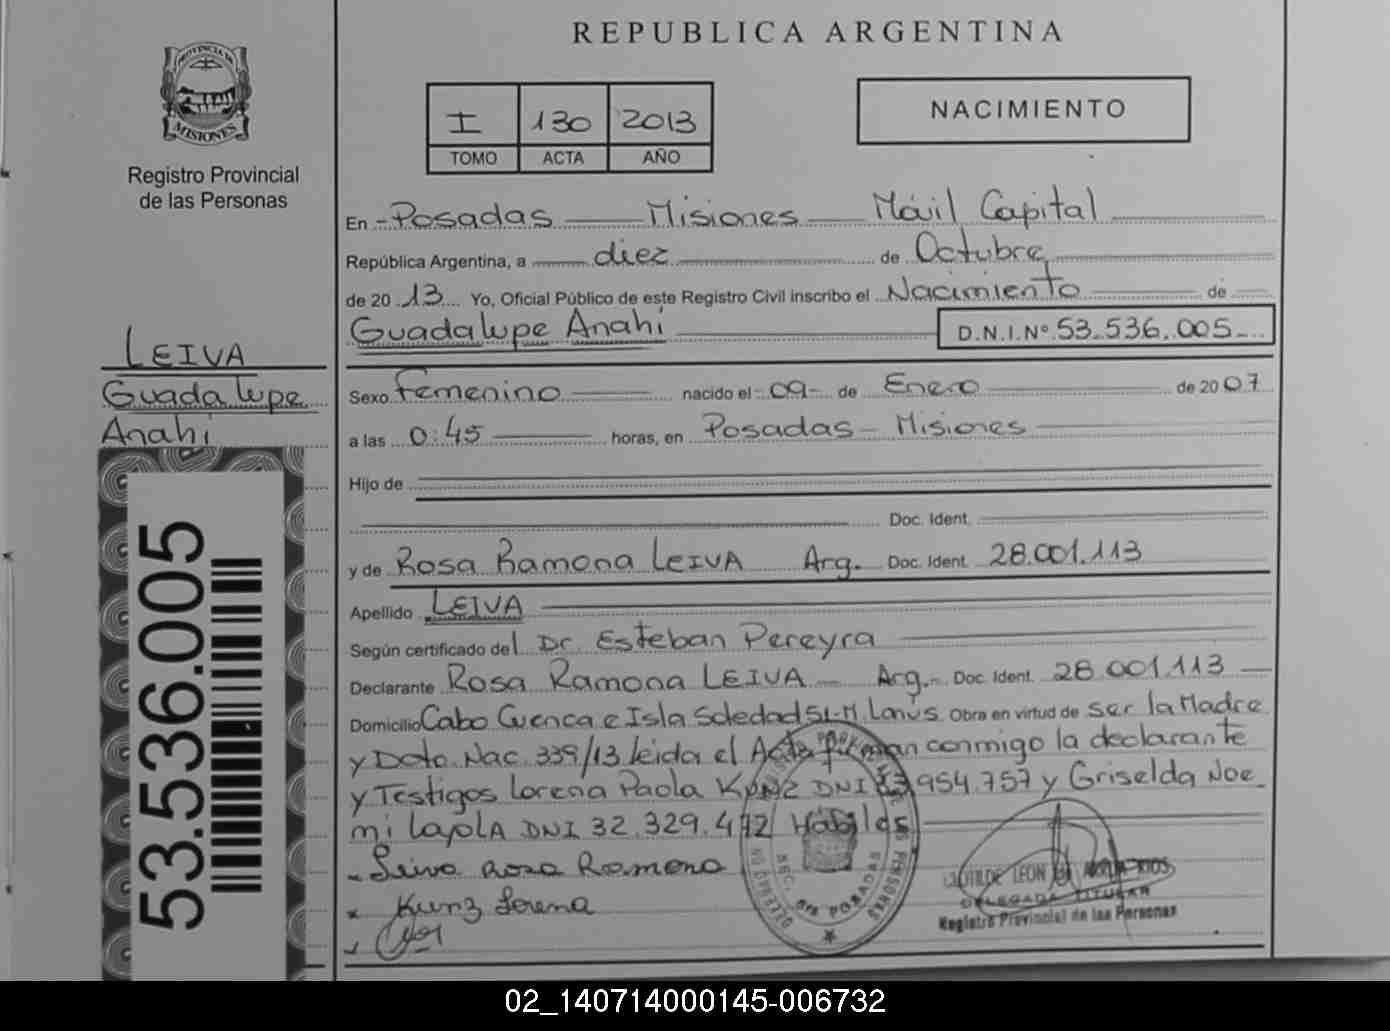 REPUBLICA ARGENTINA
PROVINCIA DE
MISIONES
Registro Provincial
de las Personas
I 130 2013
TOMO ACTA AÑO
NACIMIENTO
En Posadas Misiones Móvil Capital
República Argentina, a diez de Octubre
de 2013 Yo, Oficial Público de este Registro Civil inscribo el Nacimiento de
Guadalupe Anahí D.N.I.Nº 53.536.005
LEIVA
Guadalupe
Anahí
53.536.005
Sexo Femenino nacido el 09 de Enero de 2007
a las 0:45 horas, en Posadas - Misiones
Hijo de
Doc. Ident.
y de Rosa Ramona LEIVA Arg. Doc. Ident. 28.001.113
Apellido LEIVA
Según certificado del Dr. Esteban Pereyra
Declarante Rosa Ramona LEIVA Arg. Doc. Ident. 28.001.113
Domicilio Cabo Cuenca e Isla Soledad SL-M. Lanús. Obra en virtud de ser la Madre
y Dcto. Nac. 339/13 leída el Acta firman conmigo la declarante
y Testigos Lorena Paola Kunz DNI 33.954.757 y Griselda Noe
mi Layola DNI 32.329.472 Hábiles
Leiva Rosa Ramona
Kunz Lorena
POSADAS
DELEGADA TITULAR
Registro Provincial de las Personas
02_140714000145-006732